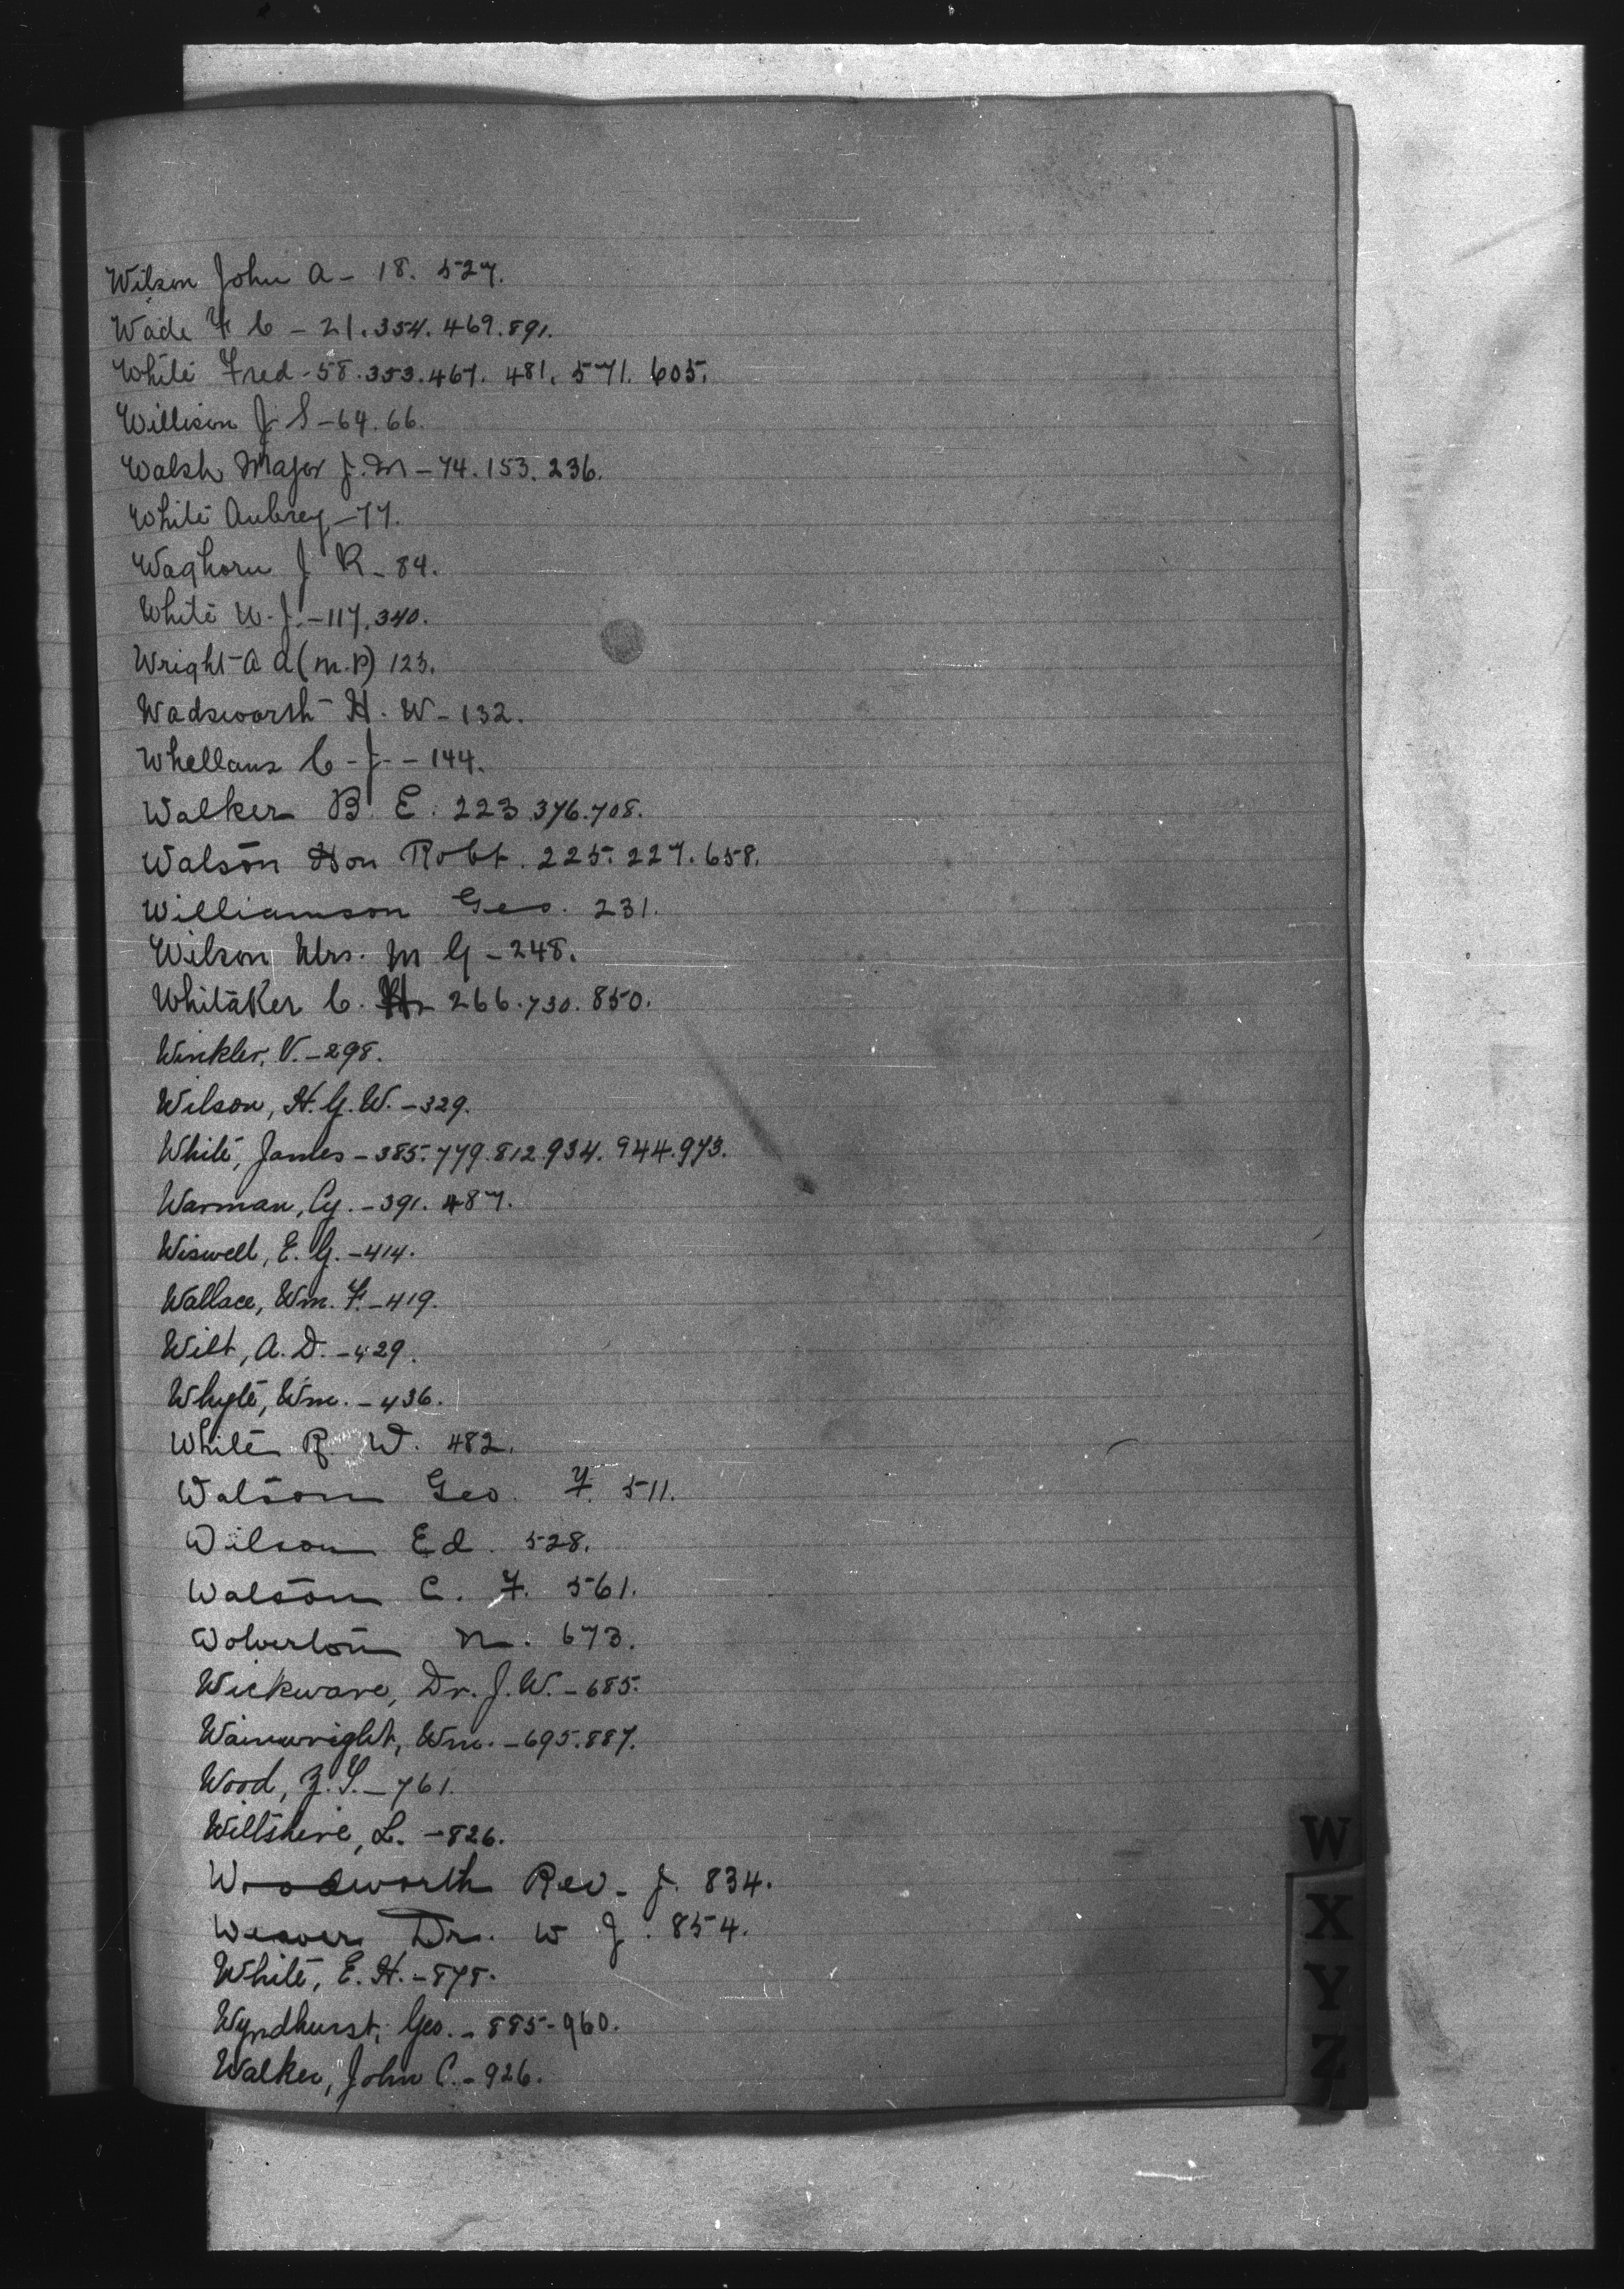 Wilson John A - 18. 527.
Wade F C - 21. 354. 469. 891.
White Fred - 58. 353. 467. 481. 571. 605.
Willison J S - 64. 66.
Walsh Major J. M - 74. 153. 236.
White Aubrey - 77.
Waghorn J R - 84.
White W. J. - 117. 340.
Wright A A (M.P) 123.
Wadsworth H. W - 132.
Whellans C - J - - 144.
Walker B. E. 223. 376. 708.
Watson Hon Robt. 225. 227. 658.
Williamson Geo. 231.
Wilson Mrs. M G - 248.
Whitaker C. 266. 730. 850.
Winkler, V. - 298.
Wilson, H. G. W. - 329.
White, James - 385. 779. 812. 934. 944. 973.
Warman, Cy. - 391. 487.
Wiswell, E. G. - 414.
Wallace, Wm. F. - 419.
Wilt, A. D. - 429.
Whyte, Wm. - 436.
White R. W. 482.
Watson Geo. F. 511.
Wilson Ed. 528.
Watson C. F. 561.
Wolverton N. 673.
Wickware, Dr. J. W. - 685.
Wainwright, Wm. - 695. 887.
Wood, Z. T. - 761.
Wiltshire, L. - 826.
Woodsworth Rev. J. 834.
Weaver Dr. W J. 854.
White, E. H. - 878.
Wyndhurst, Geo. - 885 - 960.
Walker, John C. - 926.
W
X
Y
Z